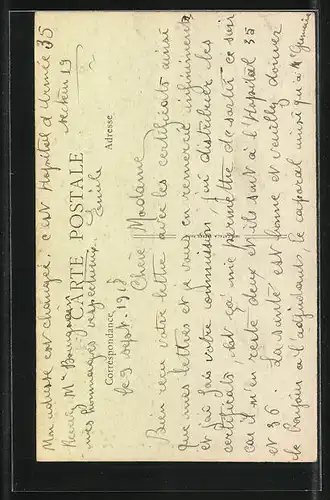 CARTE POSTALE
Correspondance
Adresse
le 9 sept. 1918
Chère Madame
Bien reçu votre lettre avec les certificats ainsi
que mes lettres et je vous en remercie infiniment
et j'ai fais votre commission j'ai distribuer les
certificats, et ça mie permettre de sortir ce soir
car il n'en reste deux et ils sont à l'Hopital 35
et 36. La santé est bonne et veuillez donner
le bonjour à l'adjudant, le caporal ainsi qu'à Mr Germain
Recevez Mme
mes hommages respectueux.
Emile
Mon adresse est changer. c'est Hopital d'Armée 35
Secteur 19